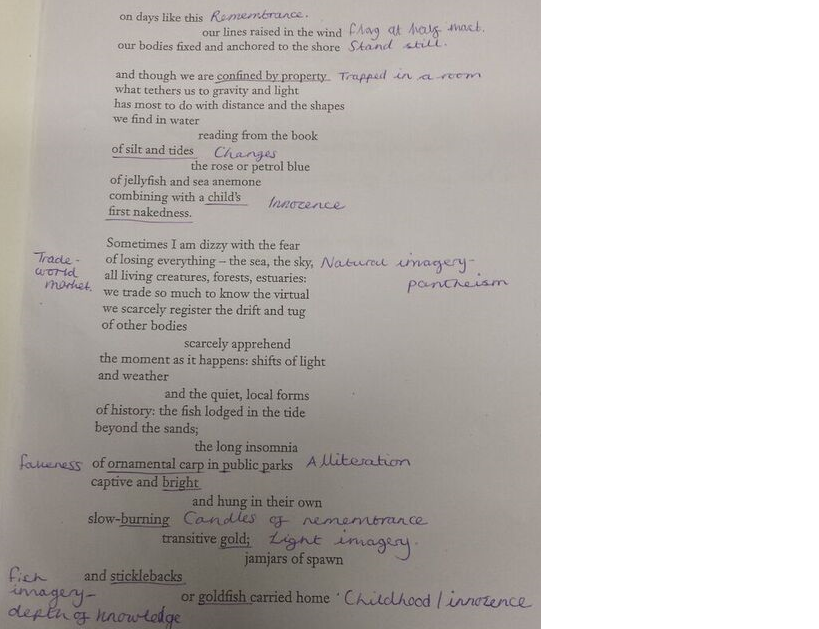 on days like this Remembrance.
our lines raised in the wind flag at half mast.
our bodies fixed and anchored to the shore Stand still.
and though we are confined by property Trapped in a room
what tethers us to gravity and light
has most to do with distance and the shapes
we find in water
reading from the book
of silt and tides Changes
the rose or petrol blue
of jellyfish and sea anemone
combining with a child's
Innocence
first nakedness.
Sometimes I am dizzy with the fear
Trade - of losing everything – the sea, the sky, Natural imagery -
world all living creatures, forests, estuaries: pantheism
market. we trade so much to know the virtual
we scarcely register the drift and tug
of other bodies
scarcely apprehend
the moment as it happens: shifts of light
and weather
and the quiet, local forms
of history: the fish lodged in the tide
beyond the sands;
the long insomnia
fakeness of ornamental carp in public parks Alliteration
captive and bright
and hung in their own
slow-burning Candles of remembrance
transitive gold; Light imagery.
jamjars of spawn
fish and sticklebacks
imagery - or goldfish carried home Childhood / innocence
depth of knowledge